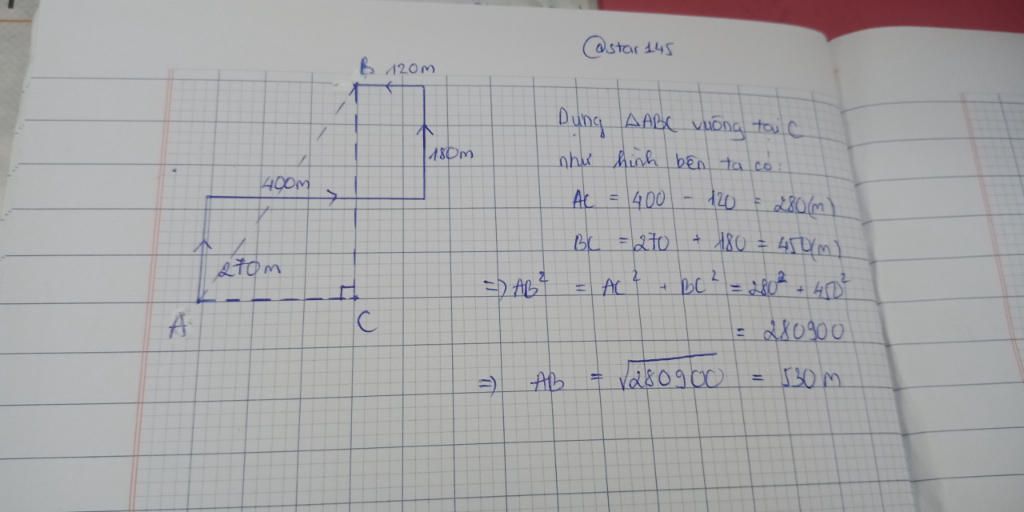 @star145
B 120m
180m
400m
270m
A
C
Dựng ΔABC vuông tại C
như hình bên ta có:
AC = 400 - 120 = 280(m)
BC = 270 + 180 = 450(m)
=> AB² = AC² + BC² = 280² + 450²
= 280900
=> AB = √280900 = 530m